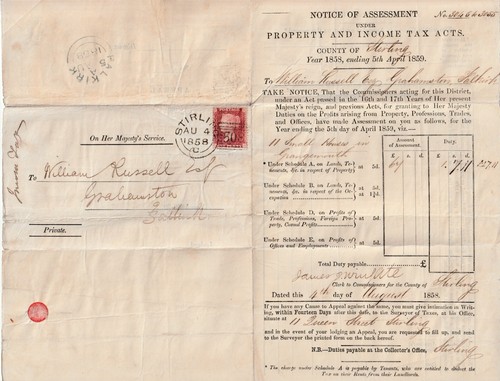 FALKIRK
On Her Majesty's Service.
STIRLING
AU 4
1858
C
To William Russell Esq
Grahamston
Falkirk
Private.
Income Tax
NOTICE OF ASSESSMENT
UNDER
PROPERTY AND INCOME TAX ACTS.
COUNTY OF Stirling
Year 1858, ending 5th April 1859.
To William Russell Esq Grahamston Falkirk
TAKE NOTICE, That the Commissioners acting for this District,
under an Act passed in the 16th and 17th Years of Her present
Majesty's reign, and previous Acts, for granting to Her Majesty
Duties on the Profits arising from Property, Professions, Trades,
and Offices, have made Assessment on you as follows, for the
Year ending the 5th day of April 1859, viz.—
11 Small Houses in
Grangemouth
Amount. Duty.
£ s. £ s. d.
* Under Schedule A on Lands, Tenements, &c. in respect of Property } at 5d.
Under Schedule B on Lands, Tenements, &c. in respect of the Occupation } at
Under Schedule D, on Profits of Trade, Professions, Foreign Property, Casual Profits } at 5d.
Under Schedule E, on Profits of Offices and Employments } at 5d.
Total Duty payable, £
Clerk to Commissioners for the County of Stirling
Dated this 4th day of August 1858.
If you have any Cause to Appeal against the same, you must give intimation in Writing,
within Fourteen Days after this date, to the Surveyor of Taxes, at his Office,
situate at 11 Queen Street Stirling
and in the event of your lodging an Appeal, you are required to fill up, and send
to the Surveyor the printed form on the back hereof.
N.B.—Duties payable at the Collector's Office, Stirling
* The charge under Schedule A is payable by Tenants, who are entitled to deduct the
Tax on their Rents from their Landlords.